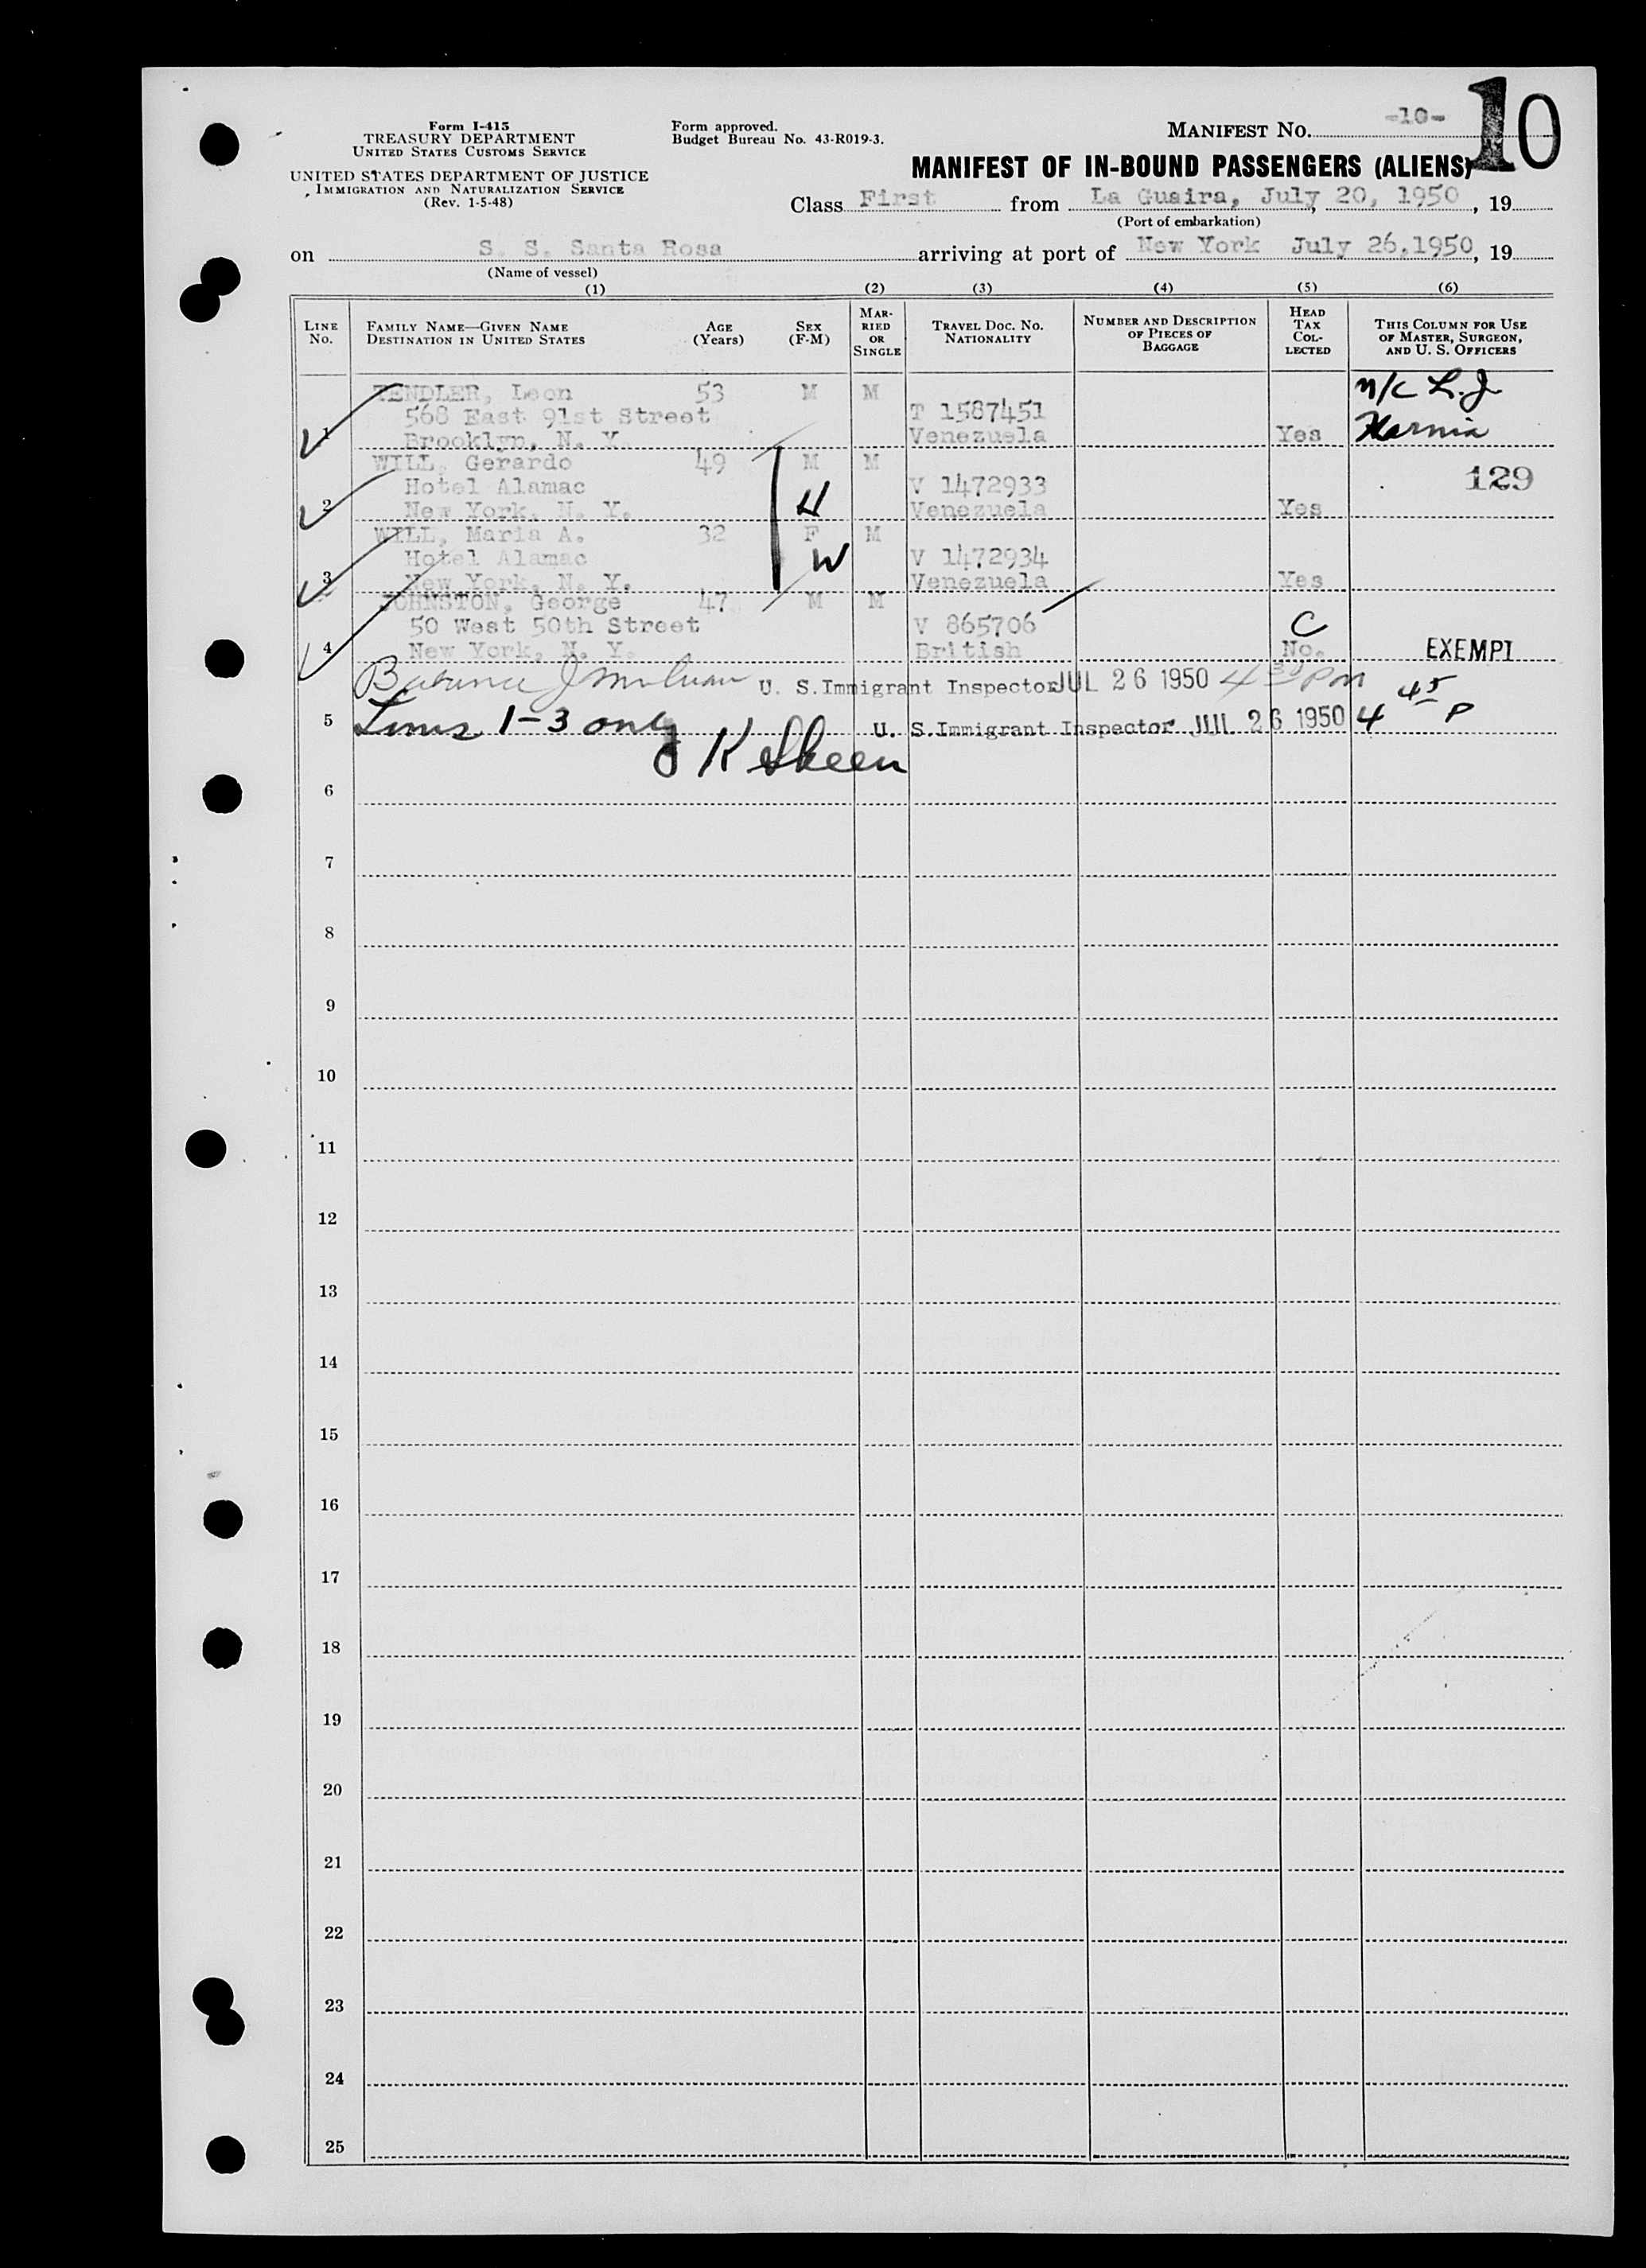 10
Form I-415
TREASURY DEPARTMENT
UNITED STATES CUSTOMS SERVICE
UNITED STATES DEPARTMENT OF JUSTICE
IMMIGRATION AND NATURALIZATION SERVICE
(Rev. 1-5-48)
Form approved.
Budget Bureau No. 43-R019-3.
MANIFEST No. -10-
MANIFEST OF IN-BOUND PASSENGERS (ALIENS)
Class First from La Guaira, July 20, 1950, 19
(Port of embarkation)
on S. S. Santa Rosa arriving at port of New York July 26,1950, 19
(Name of vessel)
(1) (2) (3) (4) (5) (6)
LINE No.
FAMILY NAME—GIVEN NAME
DESTINATION IN UNITED STATES
AGE (Years)
SEX (F-M)
MARRIED OR SINGLE
TRAVEL DOC. NO.
NATIONALITY
NUMBER AND DESCRIPTION OF PIECES OF BAGGAGE
HEAD TAX COLLECTED
THIS COLUMN FOR USE OF MASTER, SURGEON, AND U. S. OFFICERS
TENDLER, Leon 53 M M n/c L.J
568 East 91st Street T 1587451
1 Brooklyn, N. Y. Venezuela Yes Hernia
WILL, Gerardo 49 M M 129
Hotel Alamac H V 1472933
2 New York, N. Y. Venezuela Yes
WILL, Maria A. 32 F M
Hotel Alamac W V 1472934
3 New York, N. Y. Venezuela Yes
JOHNSTON, George 47 M M
50 West 50th Street V 865706 C
4 New York, N. Y. British No. EXEMPT
U. S. Immigrant Inspector JUL 26 1950 4 30 PM
5 Lines 1-3 only U. S. Immigrant Inspector JUL 26 1950 4 45 P
J K Skeen
6
7
8
9
10
11
12
13
14
15
16
17
18
19
20
21
22
23
24
25